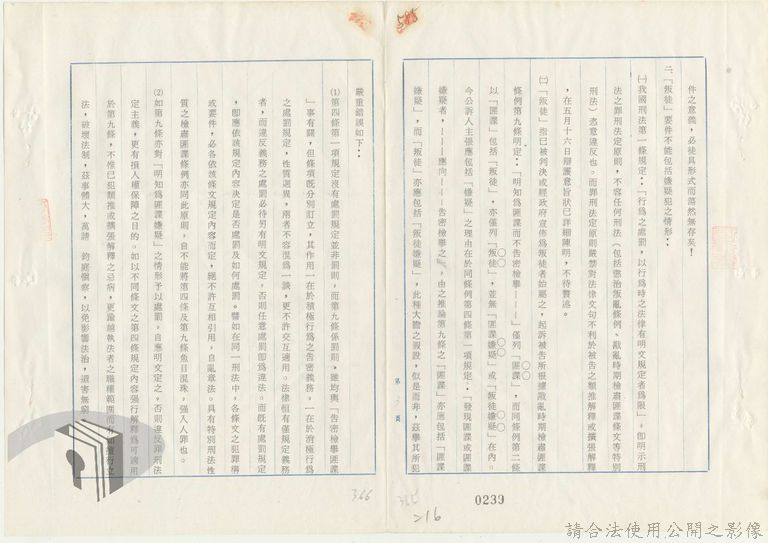 件之意義，必徒具形式而蕩然無存矣！
二、「叛徒」要件不能包括嫌疑犯之情形：
㈠我國刑法第一條規定：「行為之處罰，以行為時之法律有明文規定者為限」。即明示刑
法之罪刑法定原則，不容任何刑法（包括懲治叛亂條例、戡亂時期檢肅匪諜條文等特別
刑法）恣意違反也。而罪刑法定原則嚴禁對法律文句不利於被告之類推解釋或擴張解釋
，在五月十六日辯護意旨狀已詳細陳明，不待贅述。
㈡「叛徒」指已被判決或經政府宣佈為叛徒者始屬之，起訴被告所根據戡亂時期檢肅匪諜
條例第九條明定：「明知為匪諜而不告密檢舉———」僅列「匪諜」，而同條例第二條
以「匪諜」包括「叛徒」，亦僅列「叛徒」，並無「匪諜嫌疑」或「叛徒嫌疑」在內。
今公訴人主張應包括「嫌疑」之理由在於同條例第四條第一項規定：「發現匪諜或匪諜
嫌疑者，———應向———告密檢舉之」，由之推論第九條之「匪諜」亦應包括「匪諜
嫌疑」，而「叛徒」亦應包括「叛徒嫌疑」，此種大膽之假設，似是而非，茲舉其所犯
第 3 頁
嚴重錯誤如下：
⑴第四條第一項規定沒有處罰規定並非罰則，而第九條係罰則。雖均與「告密檢舉匪諜
」事有關，但條項既分別訂立，其作用一在於積極行為之告密義務。一在於消極行為
之處罰規定，性質迥異，兩者不容混為一談，更不許交互適用。法律恒有僅規定義務
者，而違反義務之處罰必待另有明文規定，否則任意處罰即為違法。而既有處罰規定
，即應依該規定內容決定是否處罰及如何處罰。譬如在同一刑法中，各條文之犯罪構
成要件，必各依該條文規定內容而定，絕不許互相引用，自亂章法。具有特別刑法性
質之檢肅匪諜條例亦同此原則，自不能將第四條及第九條魚目混珠，強人入罪也。
⑵如第九條亦對「明知為匪諜嫌疑」之情形予以處罰，自應明文定之。否則違反罪刑法
定主義，更有損人權保障之目的。如以不同條文之第四條規定內容強行解釋為可適用
於第九條，不惟已犯類推或擴張解釋之忌病，更踰越執法者之職權範圍而
法，破壞法制，茲事體大，萬請 鈞庭儘察，以免影響法治，遺害無窮
366
365
216
0239
請合法使用公開之影像